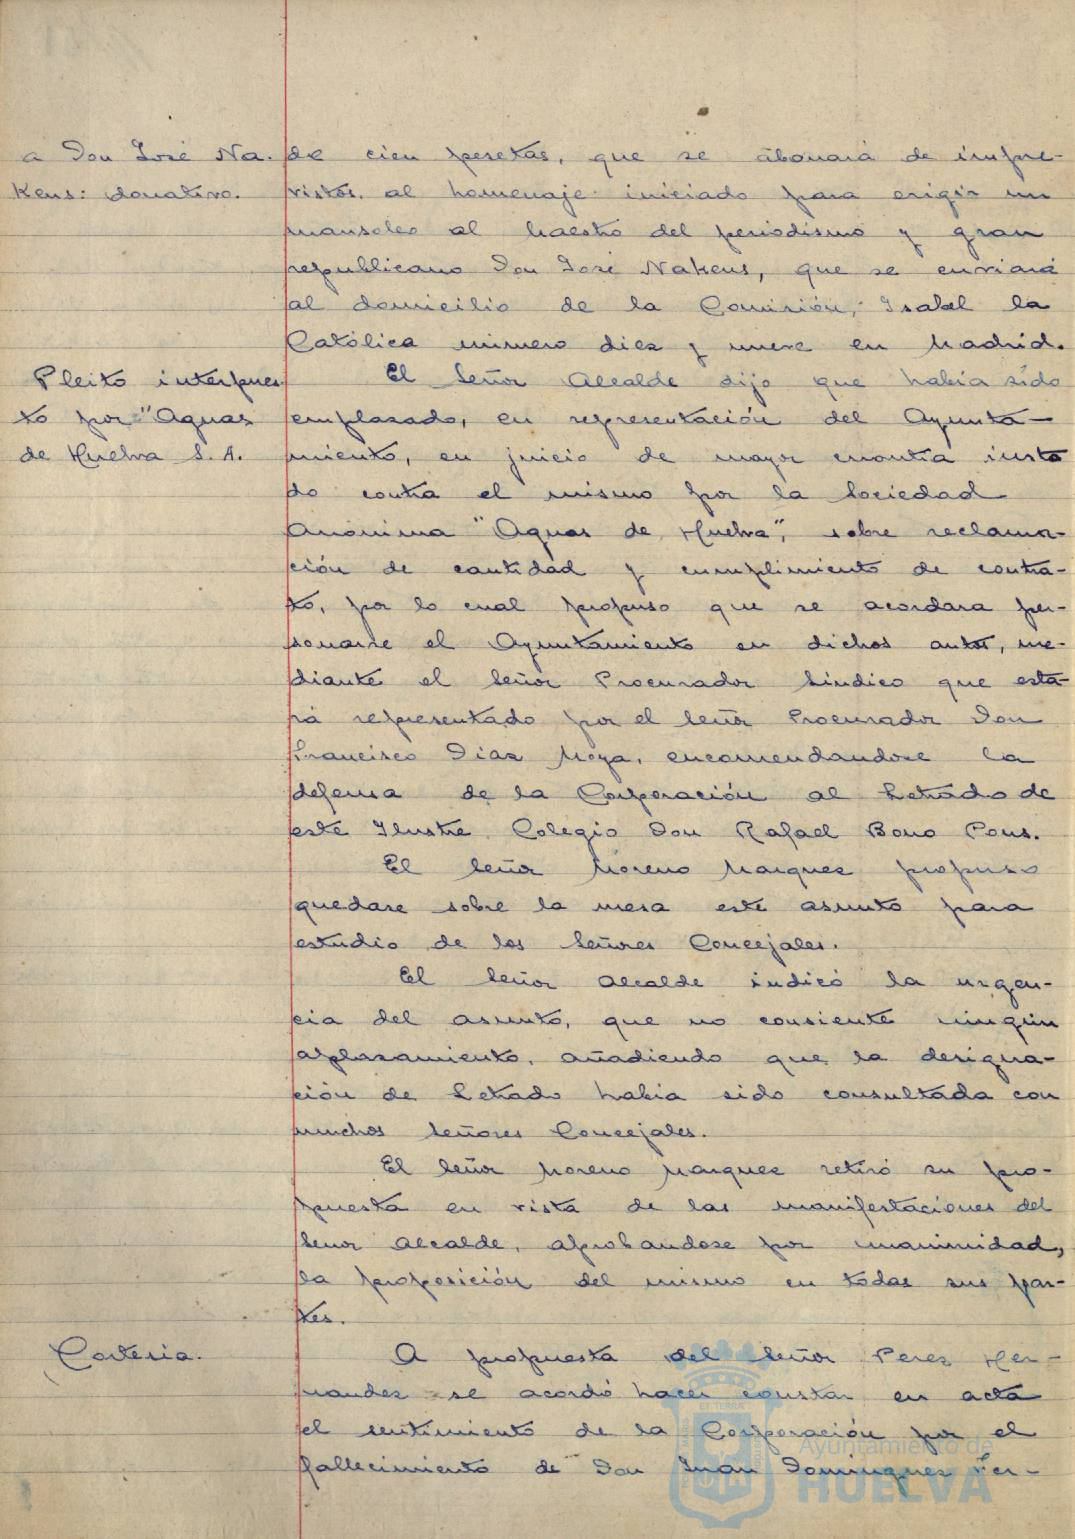 a Don José Na-
kens: donativo.
de cien pesetas, que se abonará de impre-
vistos, al homenaje iniciado para erigir un
mausoleo al Maestro del periodismo y gran
republicano Don José Nakens, que se enviará
al domicilio de la Comisión, Isabel la
Católica número diez y nueve en Madrid.
Pleito interpues
to por "Aguas
de Huelva S. A.
El Señor Alcalde dijo que había sido
emplazado, en representación del Ayunta-
miento, en juicio de mayor cuantía insta
do contra el mismo por la Sociedad
Anónima "Aguas de Huelva", sobre reclama-
ción de cantidad y cumplimiento de contra-
to, por lo cual propuso que se acordara per-
sonarse el Ayuntamiento en dichos autos, me-
diante el Señor Procurador Síndico que esta-
rá representado por el Señor Procurador Don
Francisco Díaz Moya, encomendandose la
defensa de la Corporación al Letrado de
este Ilustre Colegio Don Rafael Bono Pons.
El Señor Moreno Marquez propuso
quedase sobre la mesa este asunto para
estudio de los Señores Concejales.
El Señor Alcalde indicó la urgen-
cia del asunto, que no consiente ningún
aplazamiento, añadiendo que la designa-
ción de Letrado había sido consultada con
muchos Señores Concejales.
El Señor Moreno Marquez retiró su pro-
puesta en vista de las manifestaciones del
Señor Alcalde, aprobandose por unanimidad,
la proposición del mismo en todas sus par-
tes.
Cortesia.
A propuesta del Señor Perez Her-
nandez se acordó hacer constar en acta
el sentimiento de la Corporación por el
fallecimiento de Don Juan Dominguez Fer-
Ayuntamiento de
HUELVA